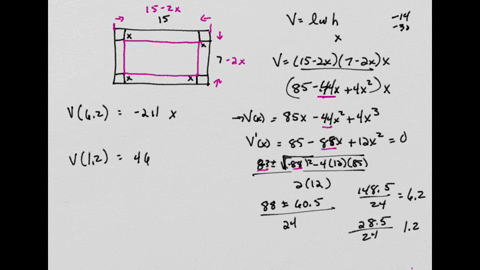 15-2x
15
x x
7-2x
x x
V(6.2) = -211 x
V(1.2) = 46
V = lwh
x
-14
-30
V = (15-2x)(7-2x)x
(85-44x+4x²)x
→V(x) = 85x-44x²+4x³
V'(x) = 85-88x+12x² = 0
88±√(-88)²-4(12)(85)
2(12)
88±60.5
24
148.5
24
= 6.2
28.5
24
1.2